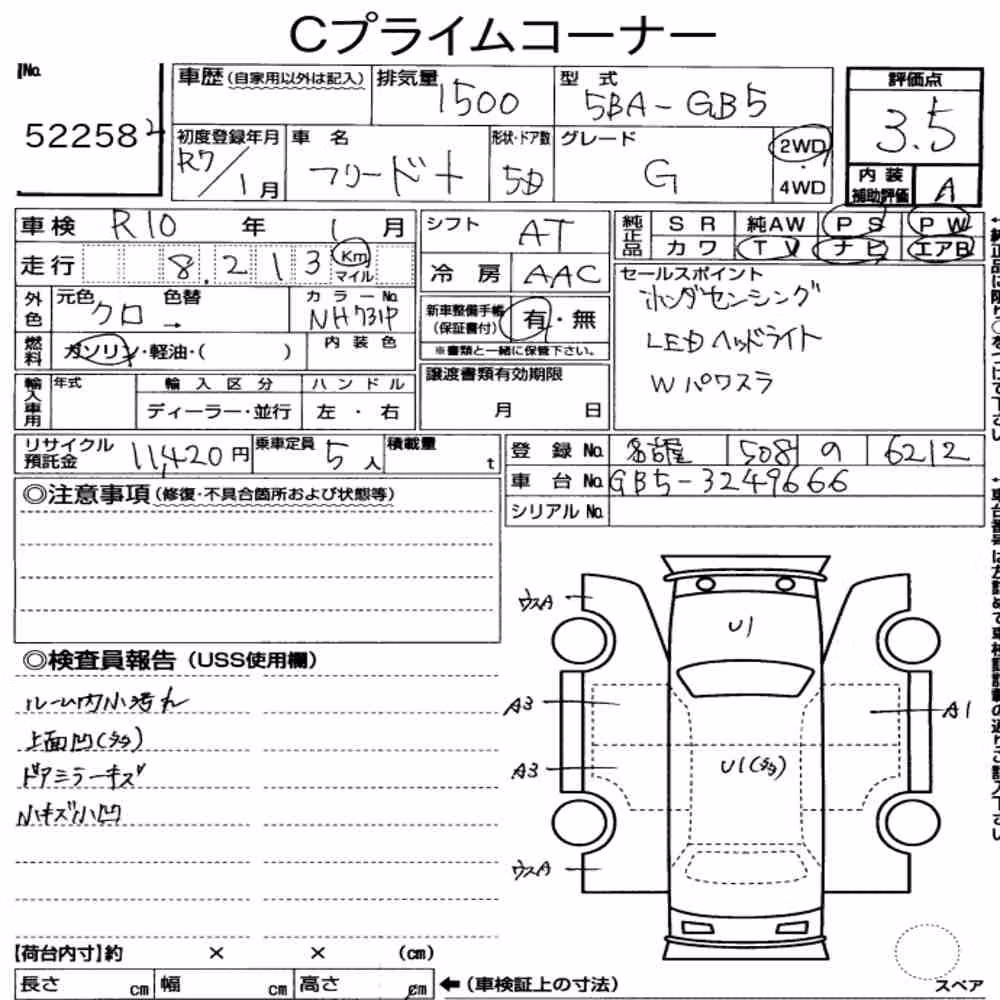 Cプライムコーナー
No.
52258 2
車歴 (自家用以外は記入)
排気量 1500
型式 5BA-GB5
評価点 3.5
初度登録年月 R7/1月
車名 フリード+
形状・ドア数 5D
グレード G
2WD
・
4WD
内装補助評価 A
車検 R10 年 1 月
走行 8,213 Km マイル
外色 元色 クロ 色替 →
カラーNo. NH731P
燃料 ガソリン・軽油・( )
内装色
輸入車用 年式
輸入区分 ディーラー・並行
ハンドル 左・右
シフト AT
冷房 AAC
新車整備手帳(保証書付) 有・無
※書類と一緒に保管下さい。
譲渡書類有効期限
月 日
純正品 SR 純AW PS PW
カワ TV ナビ エアB
セールスポイント
ホンダセンシング
LEDヘッドライト
Wパワスラ
リサイクル預託金 11,420円
乗車定員 5人
積載量 t
登録No. 名古屋 508 の 6212
車台No. GB5-3249666
シリアルNo.
◎注意事項(修復・不具合箇所および状態等)
◎検査員報告(USS使用欄)
ルーム内小汚れ
上面凹(多)
ドアミラーキズ
小キズ小凹
ウスA
U1
A3
A1
A3
U1(多)
ウスA
【荷台内寸】約 × × (cm)
長さ cm 幅 cm 高さ cm
←(車検証上の寸法)
スペア